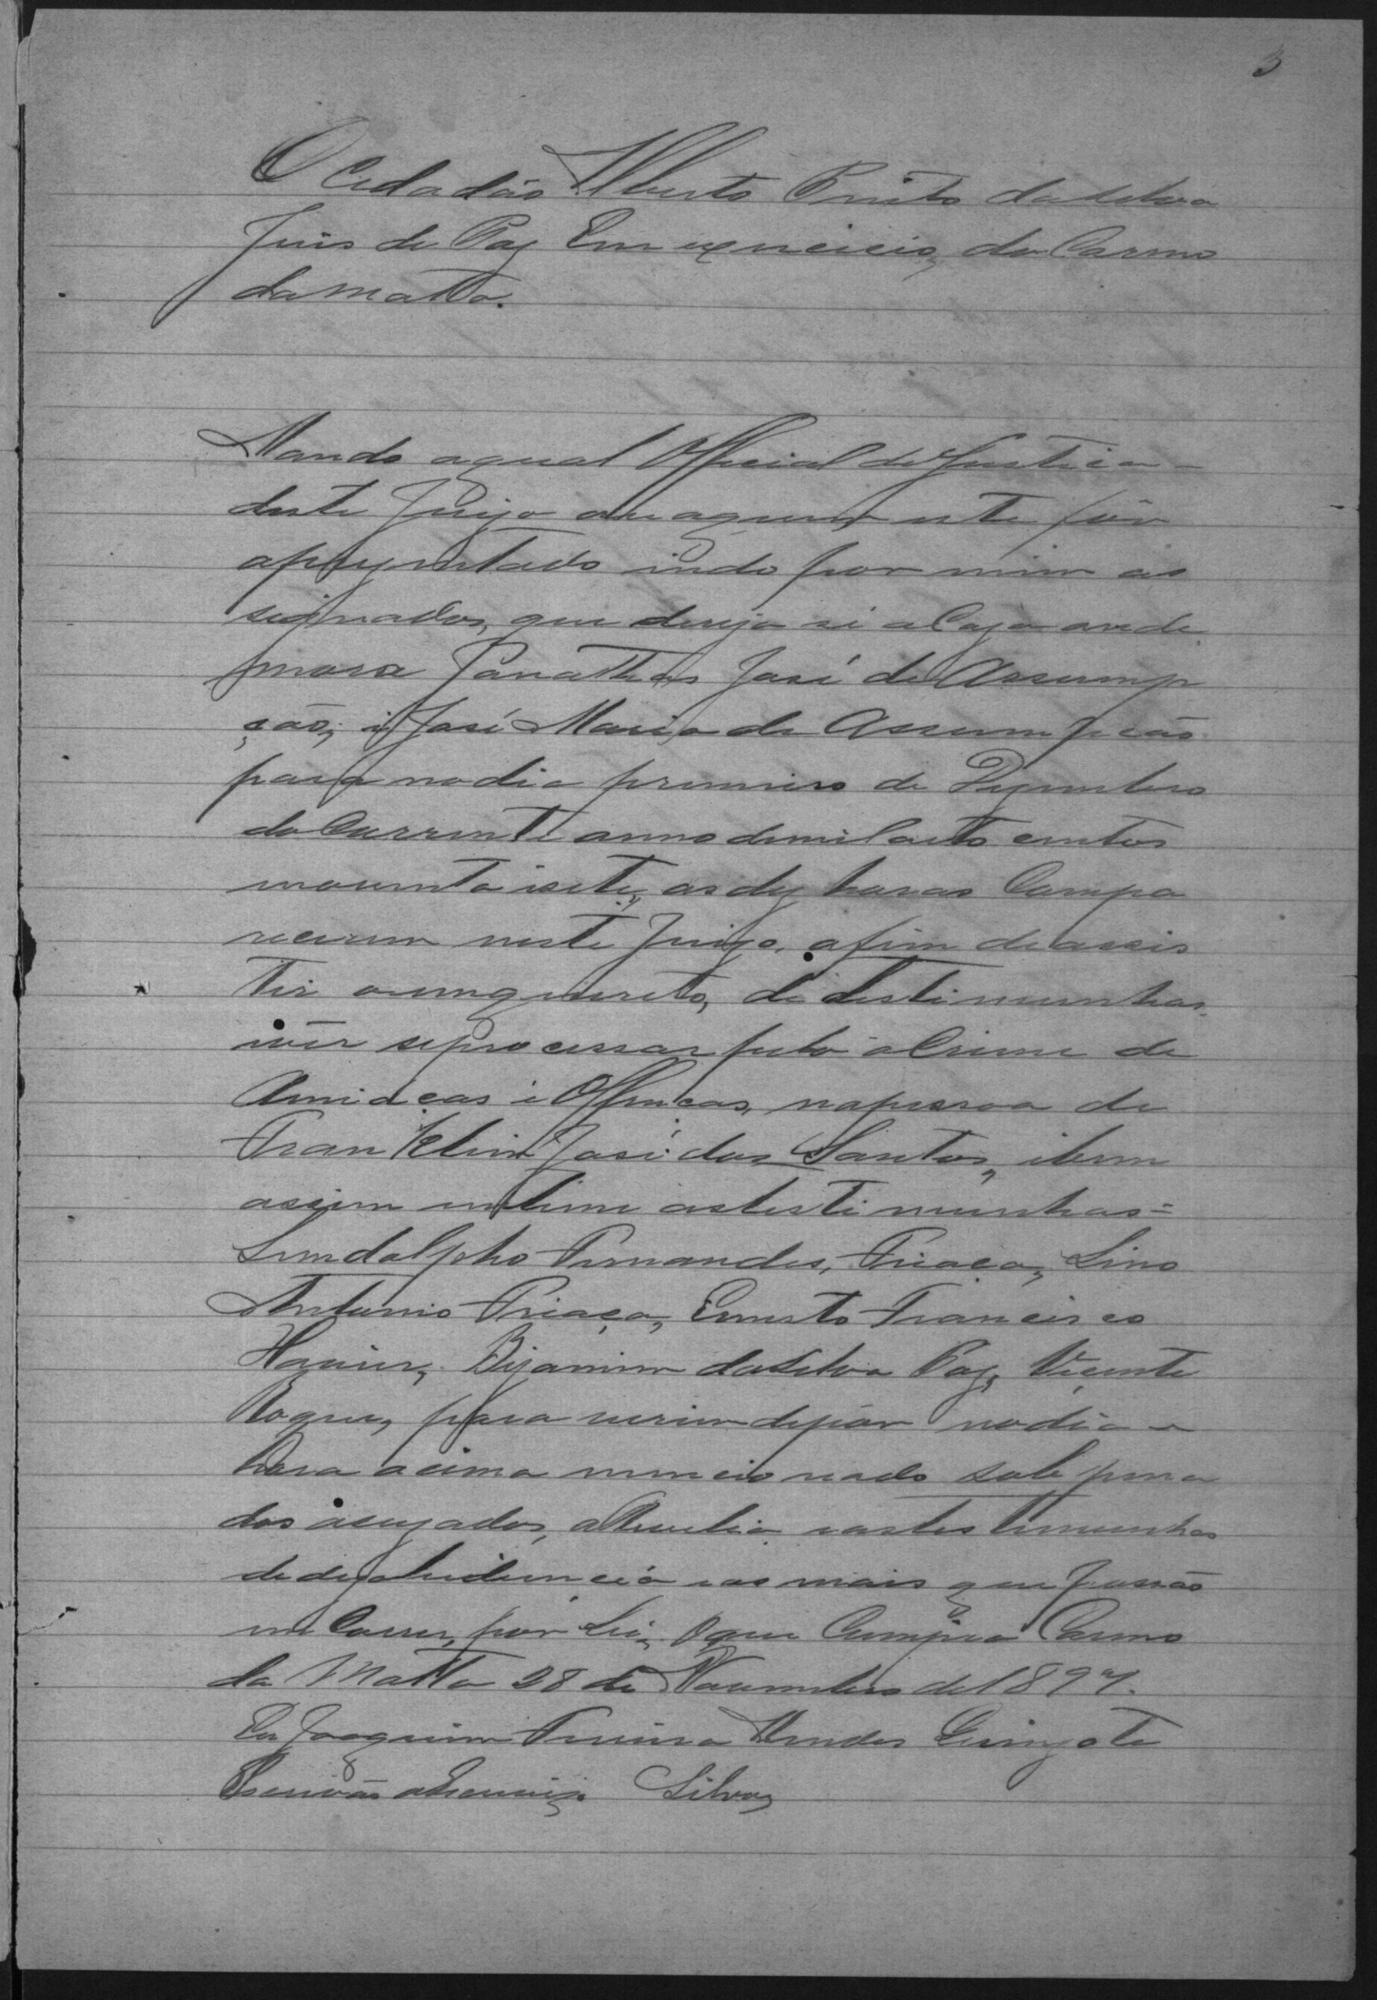 3
O Cidadão Alberto Pinto da Silva
Juis de Paz Em exercicio, do Carmo
da Matta.
Mando aqual Official de Justica
deste Juizo aque aquem este fôr
aprezentado indo por mim as
signados, que dirija si a Caza onde
mora Jonathas José de Assump
ção, i José Maria de Assumpcão
para no dia primeiro de Dezembro
do Corrente anno de mil oito centos
noventa isete, as dez horas Compa
recerem neste Juizo, afim de assis
tir o inquerito, de testimunhas
ivêr se processar pelo o Crime de
Amiaças i Offencas, na pessoa de
Franklin José dos Santos, ibem
assim intime as testimunhas =
Lindolpho Fernandes, Friaça, Lino
Antonio Friaça, Ernesto Francisco
Havier, Bijamim da Silva Paz, Vicente
Roque, para virem depôr no dia e
hora acima mencionado sob pena
dos acuzados, a Revelia e as testimunhas
de dezobidiencia e as mais que possão
in Correr, por Lei, O que Cumpra Carmo
da Matta 28 de Novembro de 1897.
Eu Joaquim Ferreira Mendes
Escrivão a Escrevi. Silva